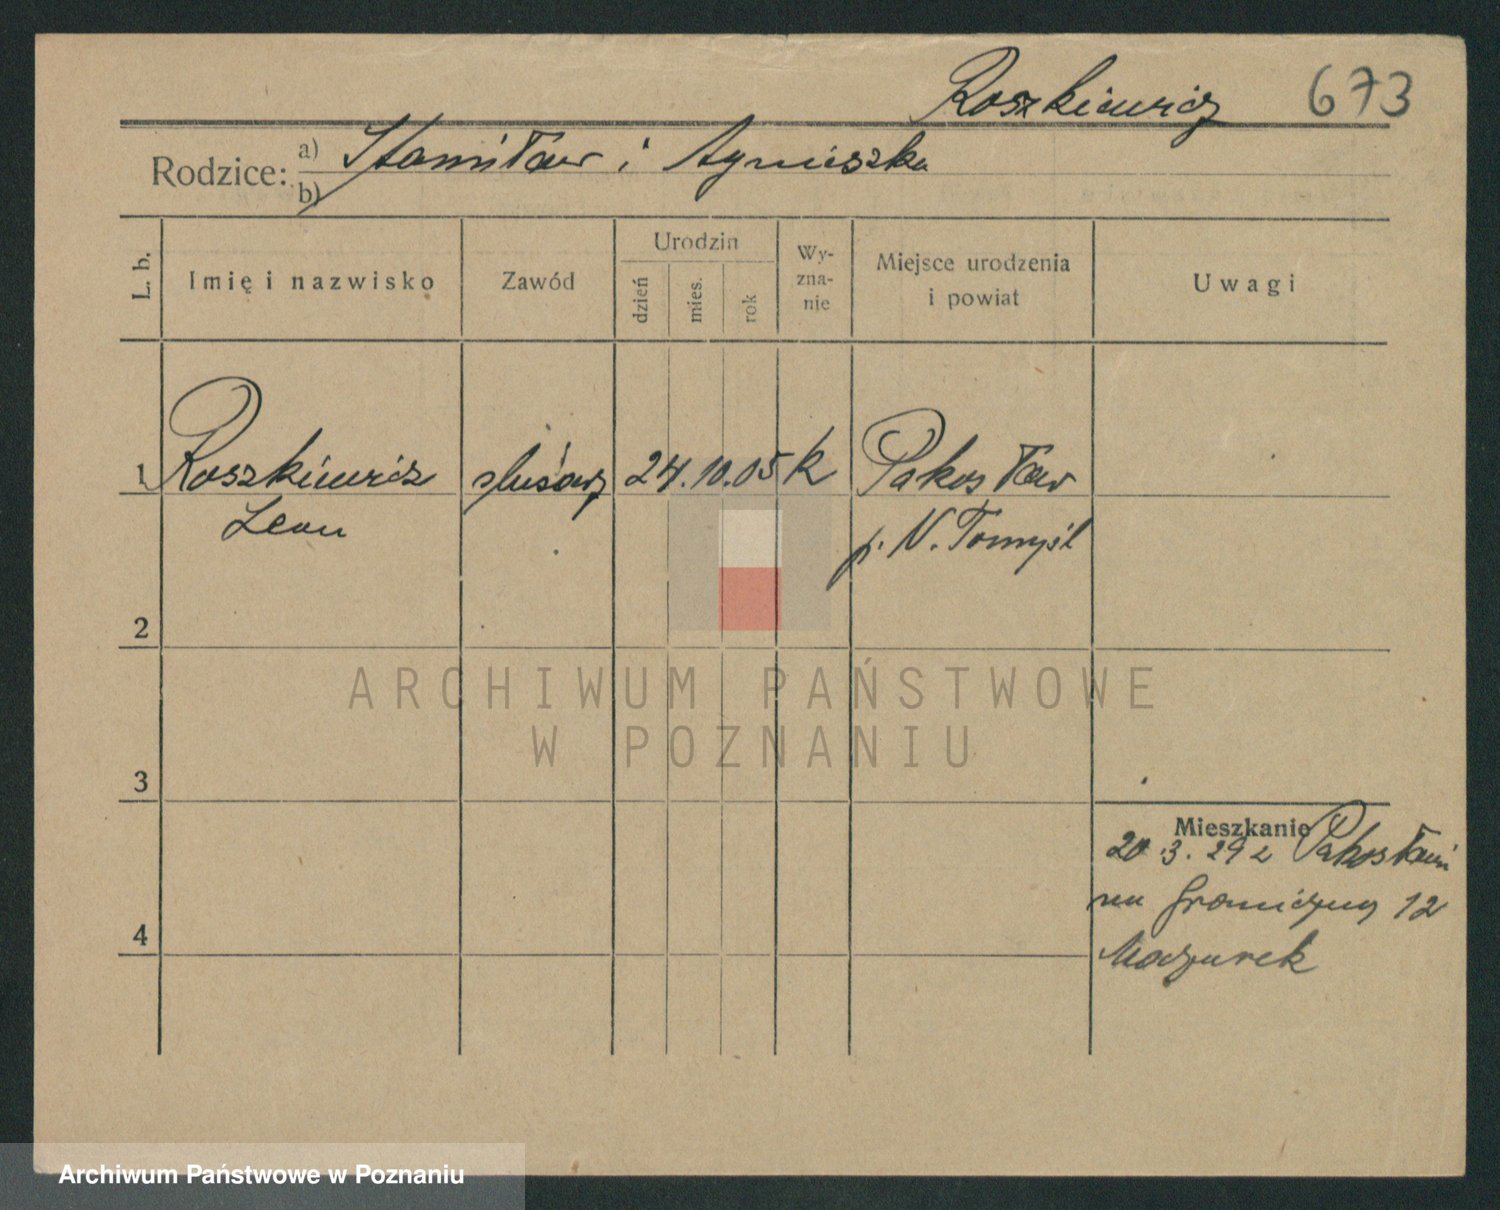 Roszkiewicz 673
Rodzice: a) Stanisław i Agnieszka
b)
L. b. Imię i nazwisko Zawód Urodzin dzień mies. rok Wy-zna-nie Miejsce urodzenia i powiat Uwagi
1 Roszkiewicz ślusarz 24. 10. 05 k Pakosław
Leon p. N. Tomyśl
2
ARCHIWUM PAŃSTWOWE
W POZNANIU
3
Mieszkanie
20.3.29 z Pakosławia
na Graniczną 12
Mazurek
4
Archiwum Państwowe w Poznaniu